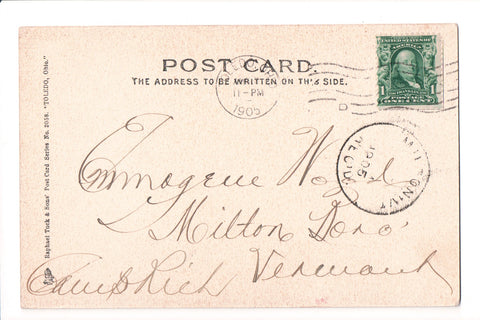 POST CARD.
THE ADDRESS TO BE WRITTEN ON THIS SIDE.
11-PM
1905
D
UNITED STATES OF AMERICA
1 1
POSTAGE
ONE CENT
1905
REC'D.
Emmogene
Milton Boro
Vermont
Cambridge
Raphael Tuck & Sons' Post Card Series No. 2018. "TOLEDO, Ohio."